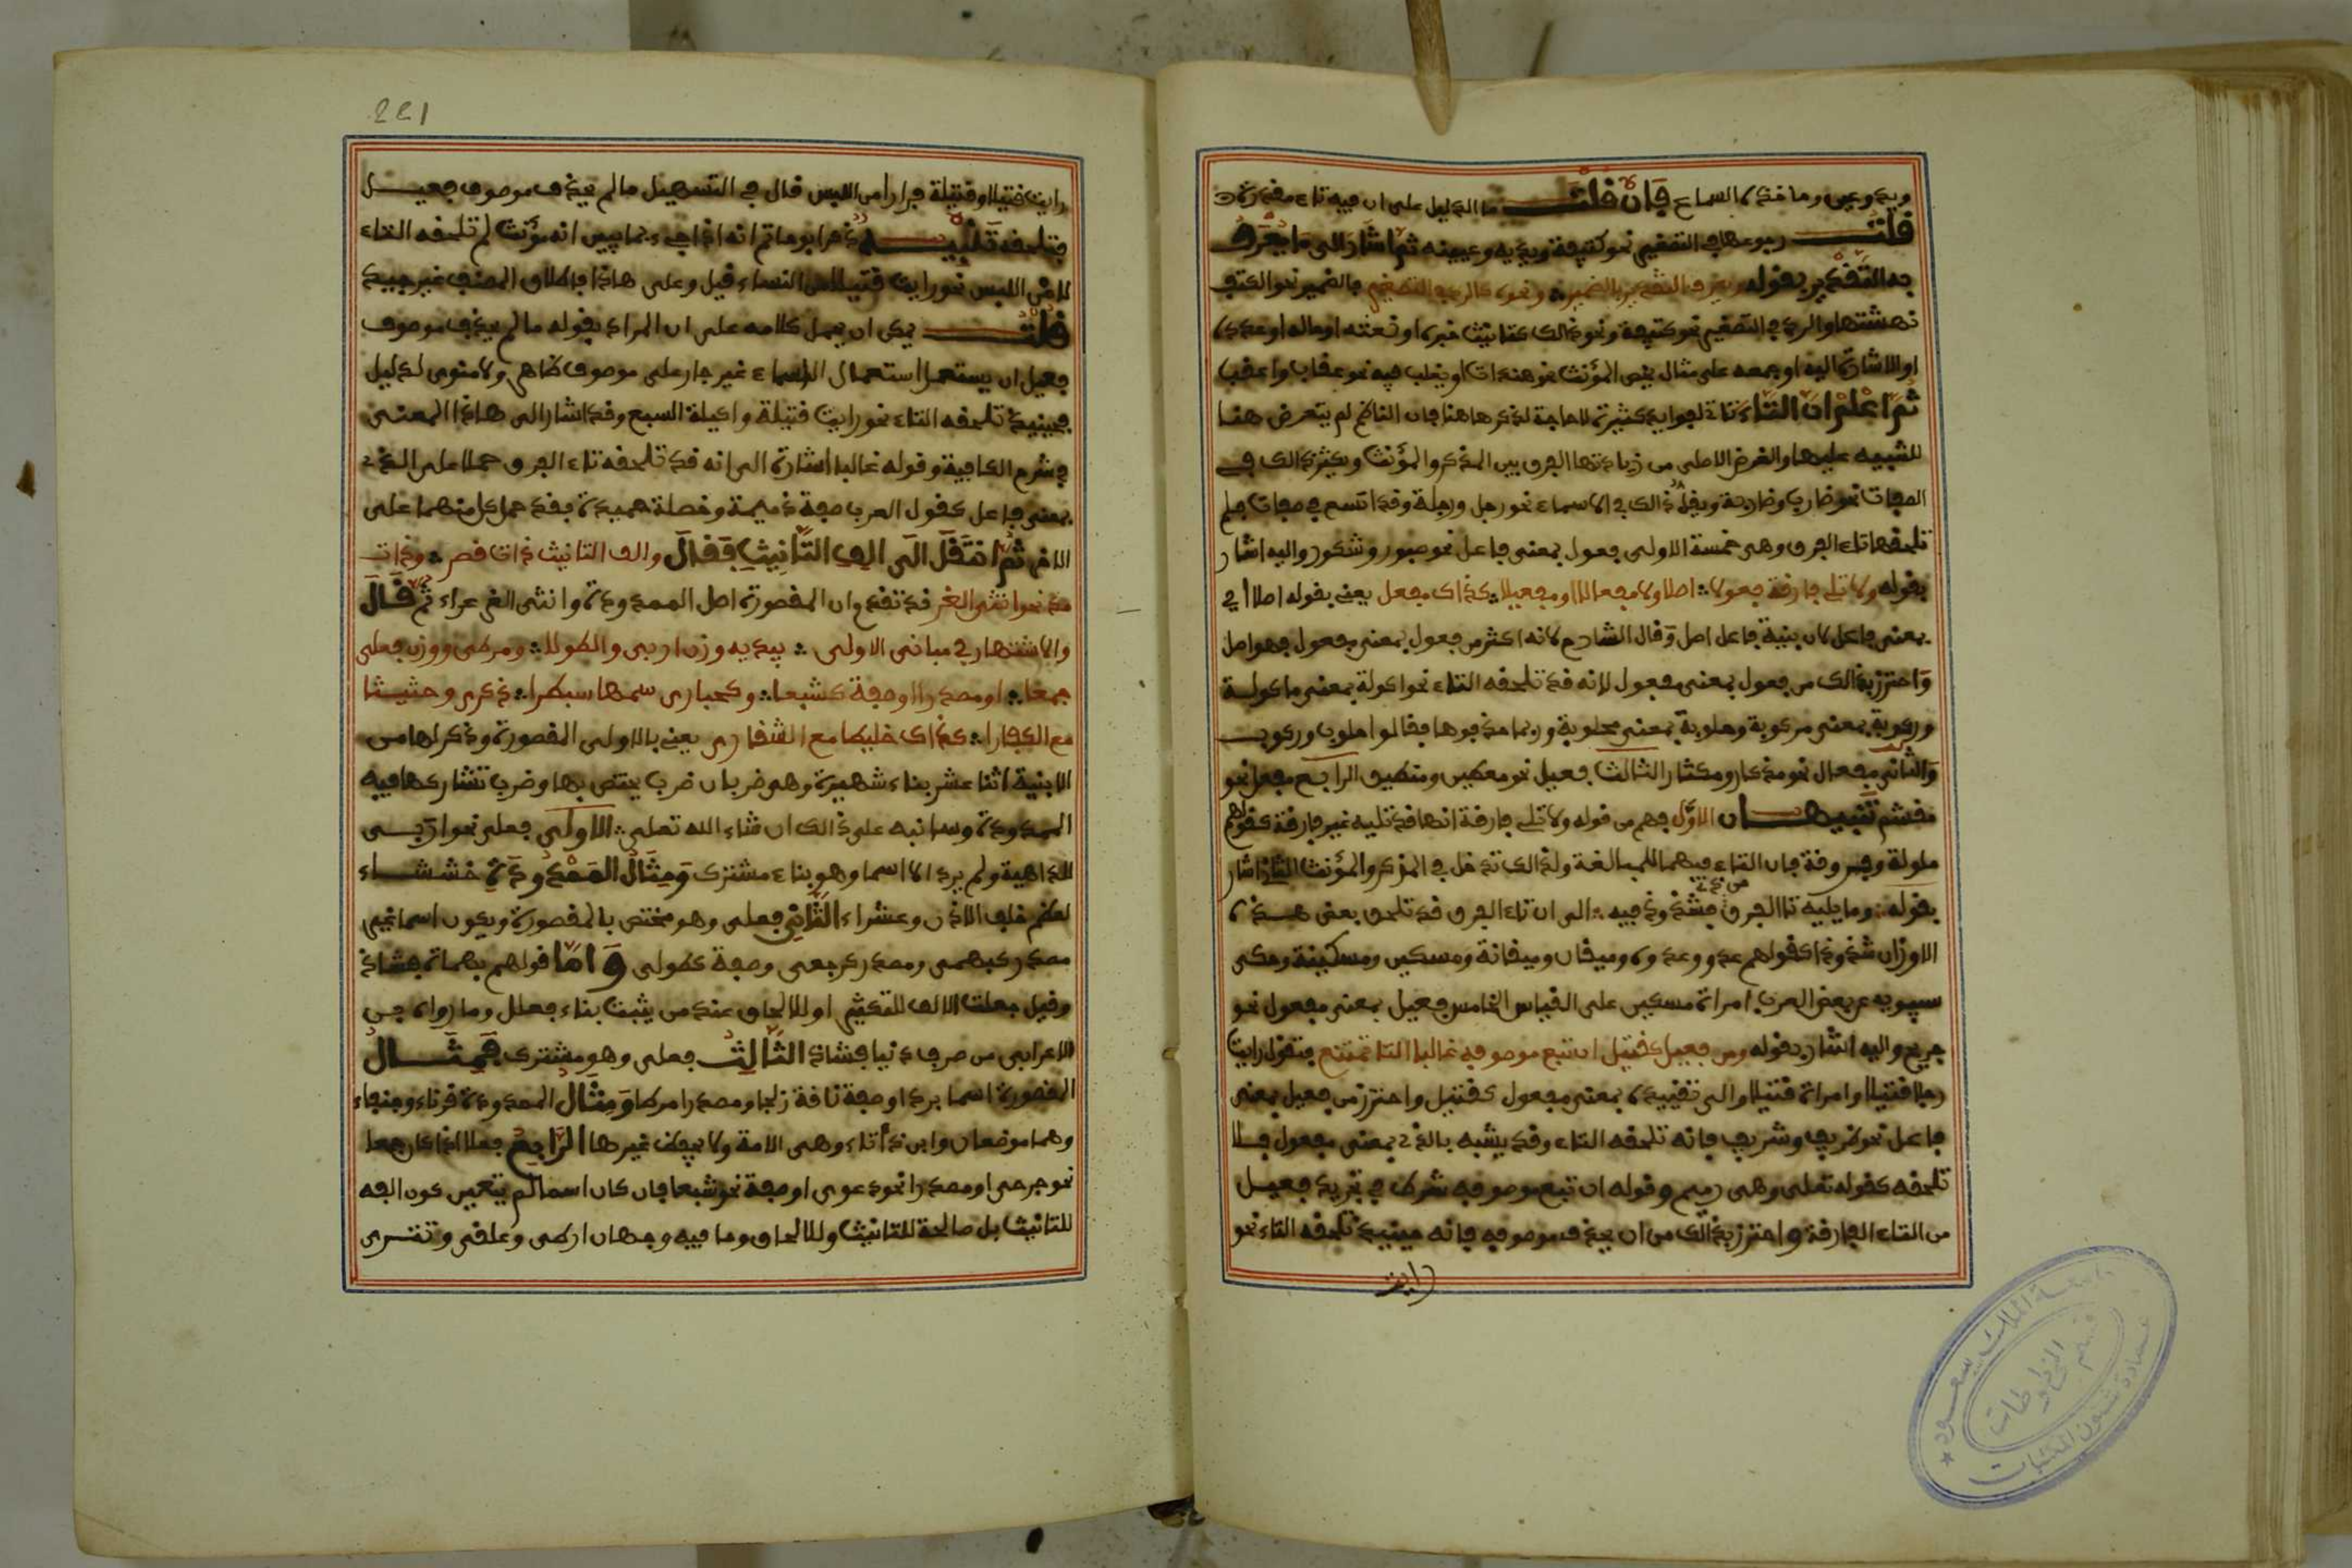 ويد وعين وما خذه السماع فإن قلت ما الدليل على ان فيه تاء مقدرة
قلت رجوعها في التصغير نحو كتيفة ويديه وعيينة ثم أشار إلى ما يعرف
به التقدير بقوله ويعرف التقدير بالضمير ونحوه كالرد في التصغير فالضمير نحو الكتف
نهشتها والرد في التصغير نحو كتيفة ونحو ذالك كتانيث خبره او نعته او حاله او عدده
او الاشارة اليه او جمعه على مثال يخص المؤنث نحو هندات او يغلب فيه نحو عقاب واعقب
ثم اعلم ان التاء تاتي لفوايد كثيرة لا حاجة لذكرها هنا فان الناظم لم يتعرض هنا
للتنبيه عليها والغرض الاصلي من زيادتها الفرق بين المذكر والمؤنث ويكثر ذالك في
الصفات نحو ضارب وضاربة ويقل ذالك في الاسماء نحو رجل ورجلة وقد اتسع في صفات فلم
تلحقها تاء الفرق وهي خمسة الاولى فعول بمعنى فاعل نحو صبور وشكور واليه اشار
بقوله ولا تلي فارقة فعولا اصلا ولا مفعالا او مفعيلا كذاك مفعل يعني بقوله اصلا اي
بمعنى فاعل لان بنية فاعل اصل وقال الشارح لانه اكثر من فعول بمعنى مفعول فهو اصل
واحترز بذالك من فعول بمعنى مفعول لانه قد تلحقه التاء نحو اكولة بمعنى ماكولة
وركوبة بمعنى مركوبة وحلوبة بمعنى محلوبة وربما حذفوها فقالوا حلوب وركوب
والثاني مفعال نحو مذكار ومكثار الثالث فعيل نحو معطير ومنطيق الرابع مفعل نحو
مغشم تنبيهان الاول فهم من قوله ولا تلي فارقة انها قد تليه غير فارقة كقولهم
ملولة وفروقة فان التاء فيهما للمبالغة ولذالك تدخل في المذكر والمؤنث الثاني اشار
بقوله وما يليه تا الفرق من ذي فشذوذ فيه الى ان تاء الفرق قد تلحق بعض هذه
الاوزان شذوذا كقولهم عدو وعدوة وميقان وميقانة ومسكين ومسكينة وحكى
سيبويه عن بعض العرب امراة مسكين على القياس الخامس فعيل بمعنى مفعول نحو
جريح واليه اشار بقوله ومن فعيل كقتيل ان تبع موصوفه غالبا التا تمتنع فتقول رايت
رجلا قتيلا وامراة قتيلا والى تقييده بمعنى مفعول كقتيل واحترز من فعيل بمعنى
فاعل نحو ظريف وشريف فانه تلحقه التاء وقد يشبه بالذي بمعنى مفعول فلا
تلحقه كقوله تعلى وهي رميم وقوله ان تبع موصوفه شرط في تجريد فعيل
من التاء الفارقة واحترز بذالك من ان يحذف موصوفه فانه حينئذ تلحقه التاء نحو
رايت
221
رايت قتيلا وقتيلة فرارا من اللبس قال في التسهيل ما لم يحذف موصوف فعيل
فتلحقه تنبيه ذكر ابو حاتم انه اذا جيء بما يبين انه مؤنث لم تلحقه التاء
لامن اللبس نحو رايت قتيلا من النساء قيل وعلى هاذا فاطلاق المصنف غير جيد
قلت يمكن ان يحمل كلامه على ان المراد بقوله ما لم يحذف موصوف
فعيل ان يستعمل استعمال الاسماء غير جار على موصوف ظاهر ولا منوي لدليل
فحينئذ تلحقه التاء نحو رايت قتيلة واكيلة السبع وقد اشار الى هاذا المعنى
في شرح الكافية وقوله غالبا اشارة الى انه قد تلحقه تاء الفرق حملا على الذي
بمعنى فاعل كقول العرب صفة ذميمة وخصلة حميدة فقد حمل كل منهما على
الاخر ثم انتقل الى الف التانيث فقال والف التانيث ذات قصر وذات
مد نحو انثى الغر قد تقدم ان المقصورة اصل الممدودة وانثى الغر غراء ثم قال
والاشتهار في مباني الاولى يبديه وزن اربى والطولا ومرطى ووزن فعلى
جمعا او مصدرا او صفة كشبعا وكحبارى سمهى سبطرا ذكرى وحثيثا
مع الكفرا كذاك خليطا مع الشقارى يعني بالاولى المقصورة وذكر لها من
الابنية اثنا عشر بناء شهيرة وهو ضربان ضرب يختص بها وضرب تشاركها فيه
الممدودة وسانبه على ذالك ان شاء الله تعلى الاولى فعلى نحو اربى
للداهية ولم يرد الا اسما وهو بناء مشترك ومثال الممدودة خششاء
لعظم خلف الاذن وعشراء الثاني فعلى وهو مختص بالمقصورة ويكون اسما نحو
مصدر كبهمى ومصدر كرجعى وصفة كطولى واما قولهم بهماة فشاذ
وقيل جعلت الالف للتكثير او للالحاق عند من يثبت بناء فعلل وما رواه
الاعرابي من صرف دنيا فشاذ الثالث فعلى وهو مشترك فمثال
المقصورة اسما بردا وصفة ناقة زلجا ومصدرا مرطا ومثال الممدودة
وهما موضعان وابن دأثاء وهي الامة ولا يحفظ غيرها الرابع فعلا اذا كان جمعا
نحو جرحى او مصدرا نحو دعوى او صفة نحو شبعا فان كان اسما لم يتعين كون الفه
للتانيث بل صالحة للتانيث وللالحاق وما فيه وجهان ارطى وعلقى وتترى